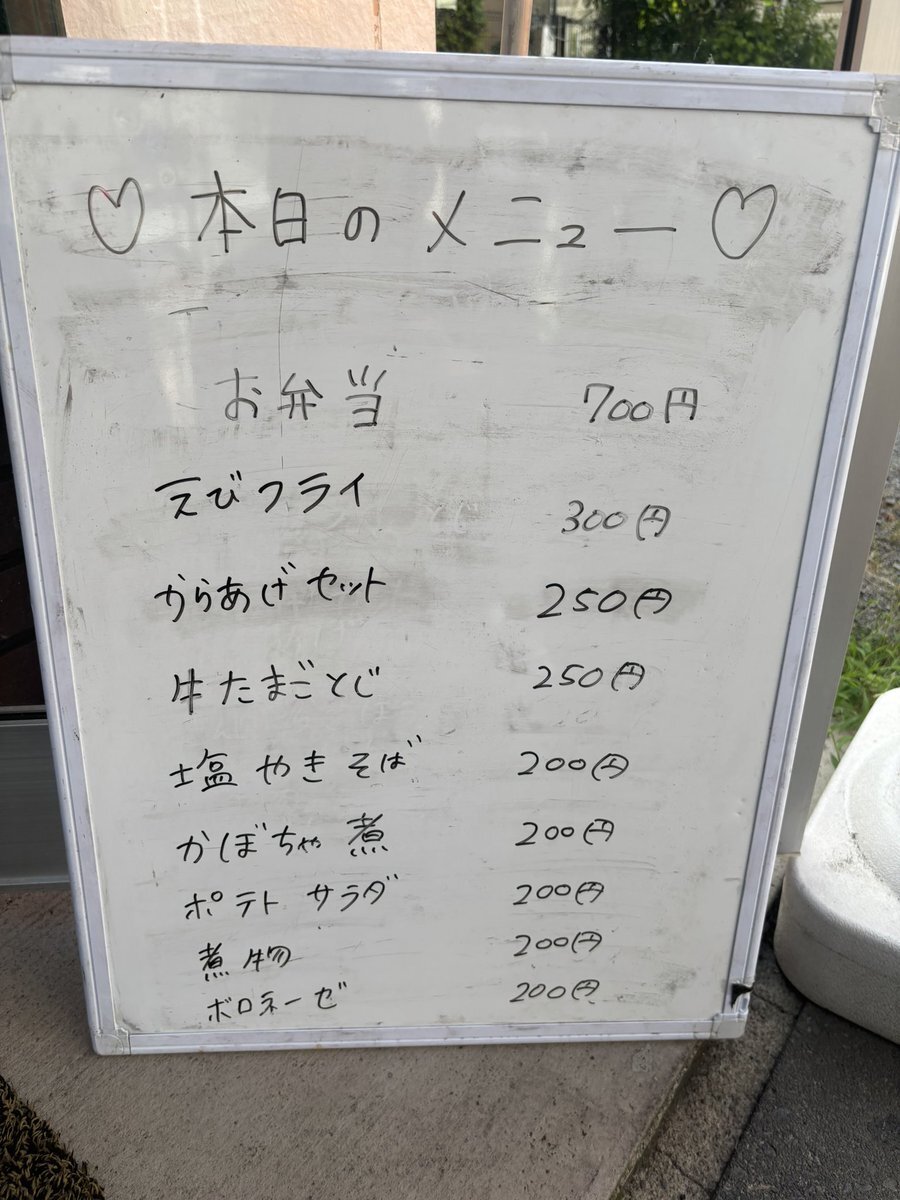 ♡ 本日のメニュー ♡
お弁当 700円
えびフライ 300円
からあげセット 250円
牛たまごとじ 250円
塩やきそば 200円
かぼちゃ煮 200円
ポテトサラダ 200円
煮物 200円
ボロネーゼ 200円